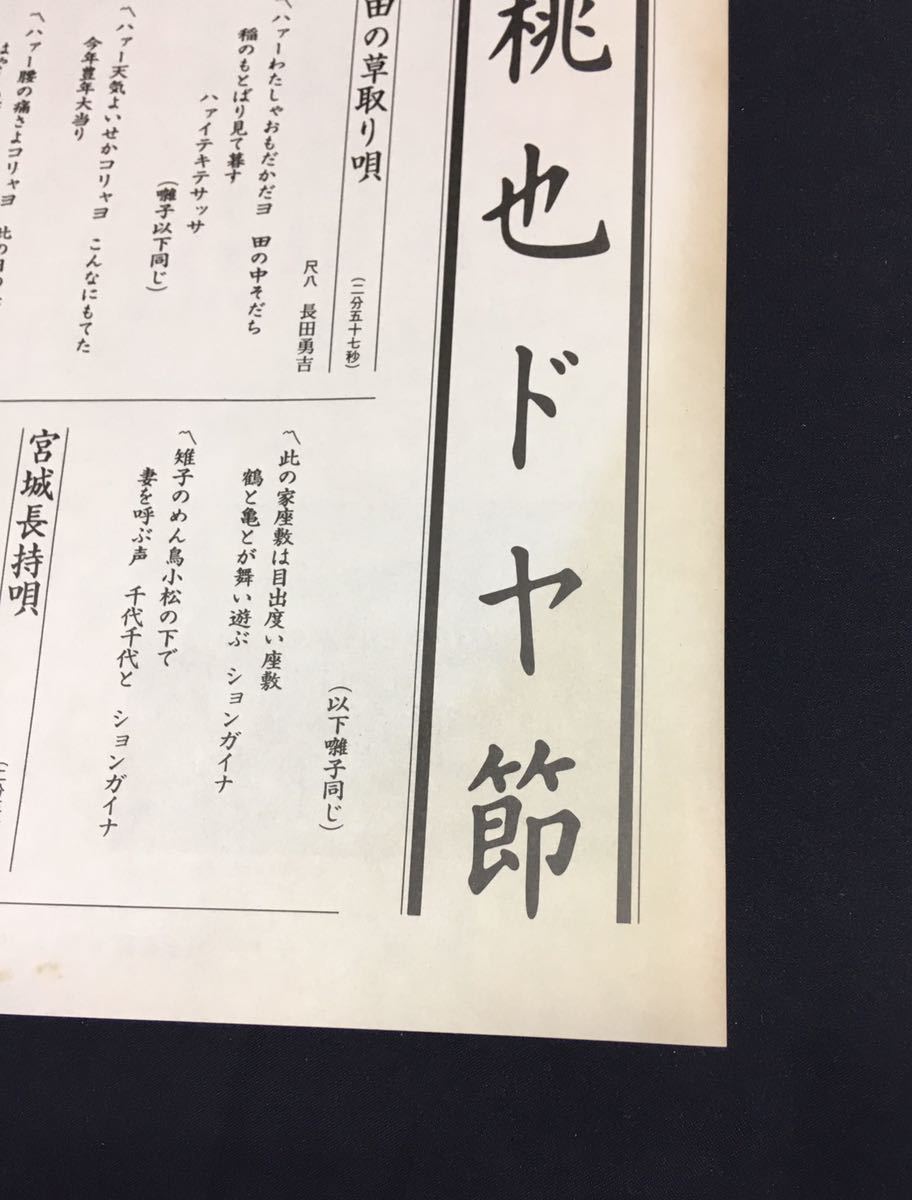 桃也ドヤ節
田の草取り唄
(二分五十七秒)
尺八 長田勇吉
〽ハァーわたしゃおもだかだヨ 田の中そだち
稲のもとばり見て暮す
ハァイテキテサッサ
(囃子以下同じ)
〽ハァー天気よいせかコリャヨ こんなにもてた
今年豊年大当り
〽ハァー腰の痛さよコリャヨ 此の
(以下囃子同じ)
〽此の家座敷は目出度い座敷
鶴と亀とが舞い遊ぶ ションガイナ
〽雉子のめん鳥小松の下で
妻を呼ぶ声 千代千代と ションガイナ
宮城長持唄